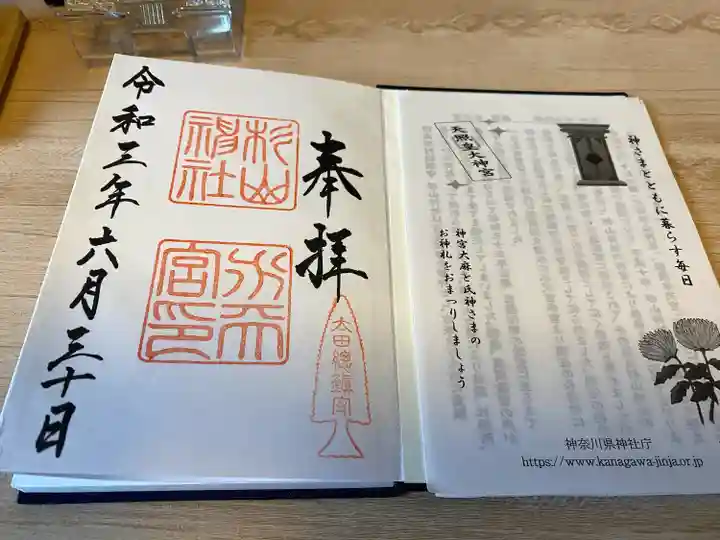 奉拝
杉山
神社
水天
宮印
太田総鎮守
令和三年六月三十日
神さまとともに暮らす毎日
天照皇大神宮
神宮大麻と氏神さまの
お神札をおまつりしましょう
神奈川県神社庁
https://www.kanagawa-jinja.or.jp